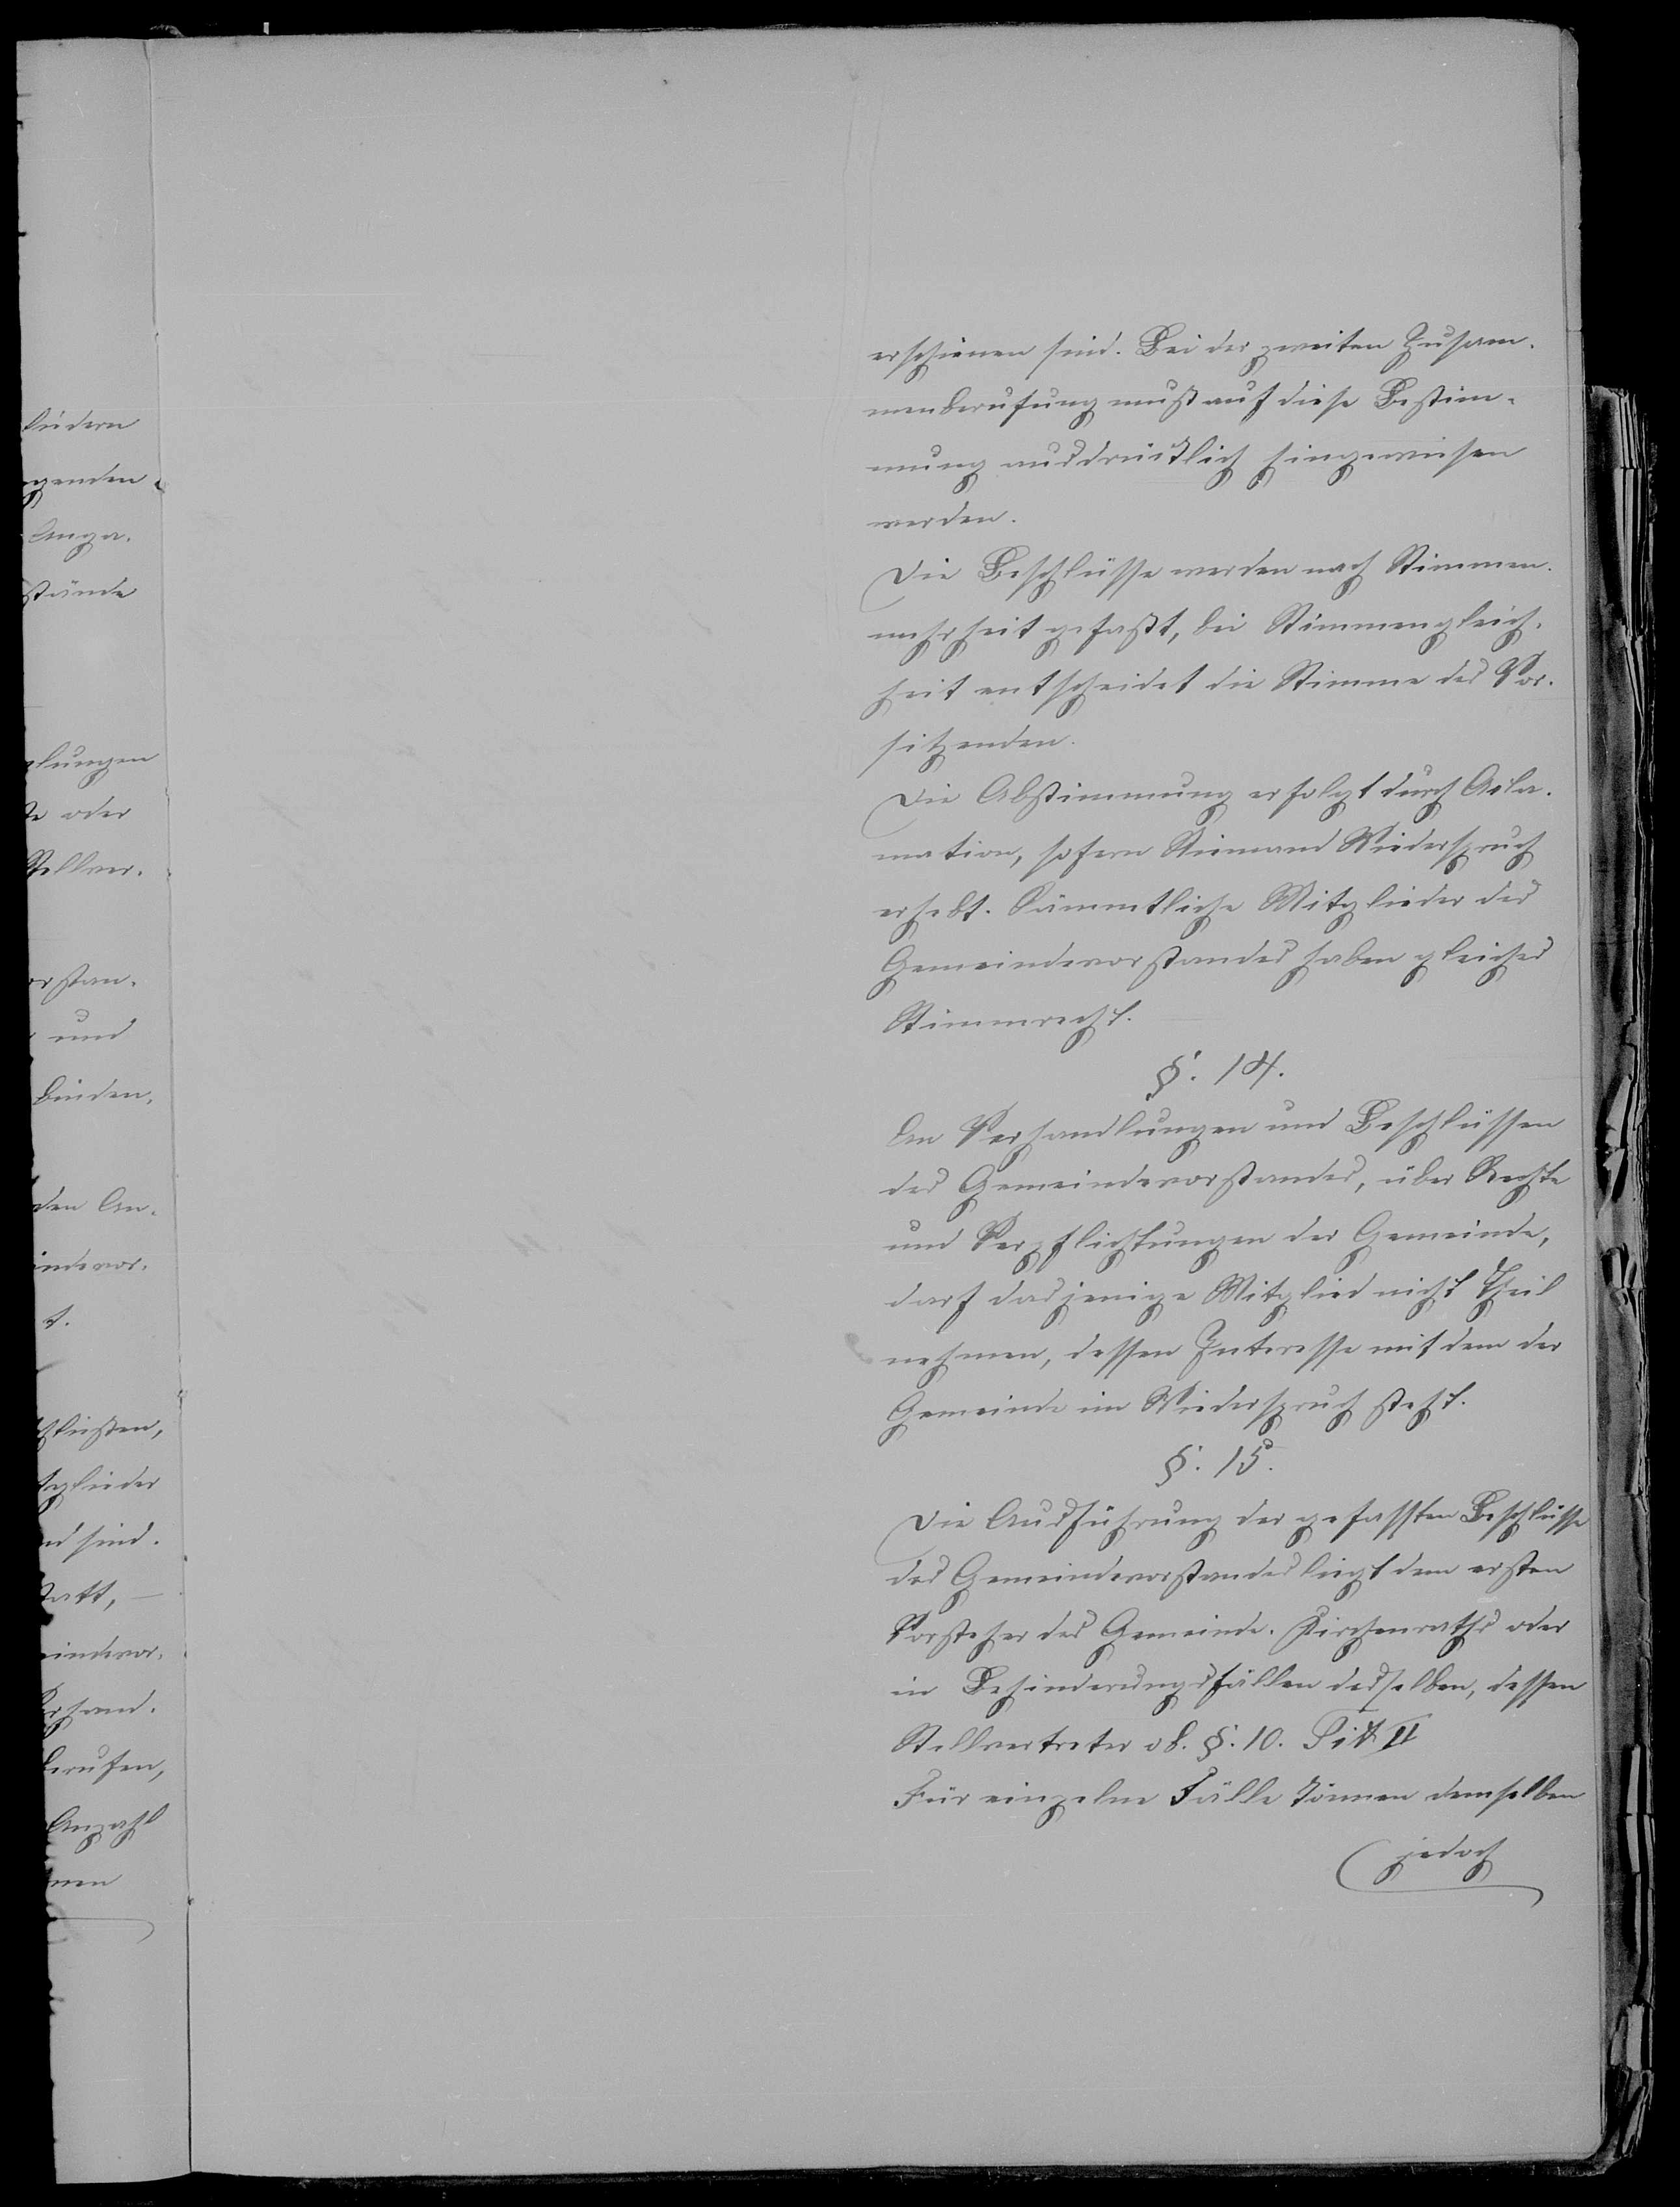 liedern
genden
Anga-
stände
lungen
te oder
Stellver-
orstan-
und
binden,
den An-
indevor-
t.
schlüssen,
tglieder
nd sind.
statt, —
eindevor-
rhand-
berufen,
Anzahl
men
erschienen sind. Bei der zweiten Zusam-
menberufung muß auf diese Bestim-
mung ausdrücklich hingewiesen
werden.
Die Beschlüsse werden nach Stimmen-
mehrheit gefaßt, bei Stimmengleich-
heit entscheidet die Stimme des Vor-
sitzenden.
Die Abstimmung erfolgt durch Acla-
mation, sofern Niemand Wiederspruch
erhebt. Sämmtliche Mitglieder des
Gemeindevorstandes haben gleiches
Stimmrecht.
§. 14.
An Verhandlungen und Beschlüssen
des Gemeindevorstandes, über Rechte
und Verpflichtungen der Gemeinde,
darf dasjenige Mitglied nicht Theil
nehmen, dessen Interesse mit dem der
Gemeinde im Wiederspruch steht.
§. 15.
Die Ausführung der gefassten Beschlüsse
des Gemeindevorstandes liegt dem ersten
Vorsteher des Gemeinde-Kirchenraths oder
in Behinderungsfällen desselben, dessen
Stellvertreter ob. §. 10. Tit II
Für einzelne Fälle können demselben
jedoch